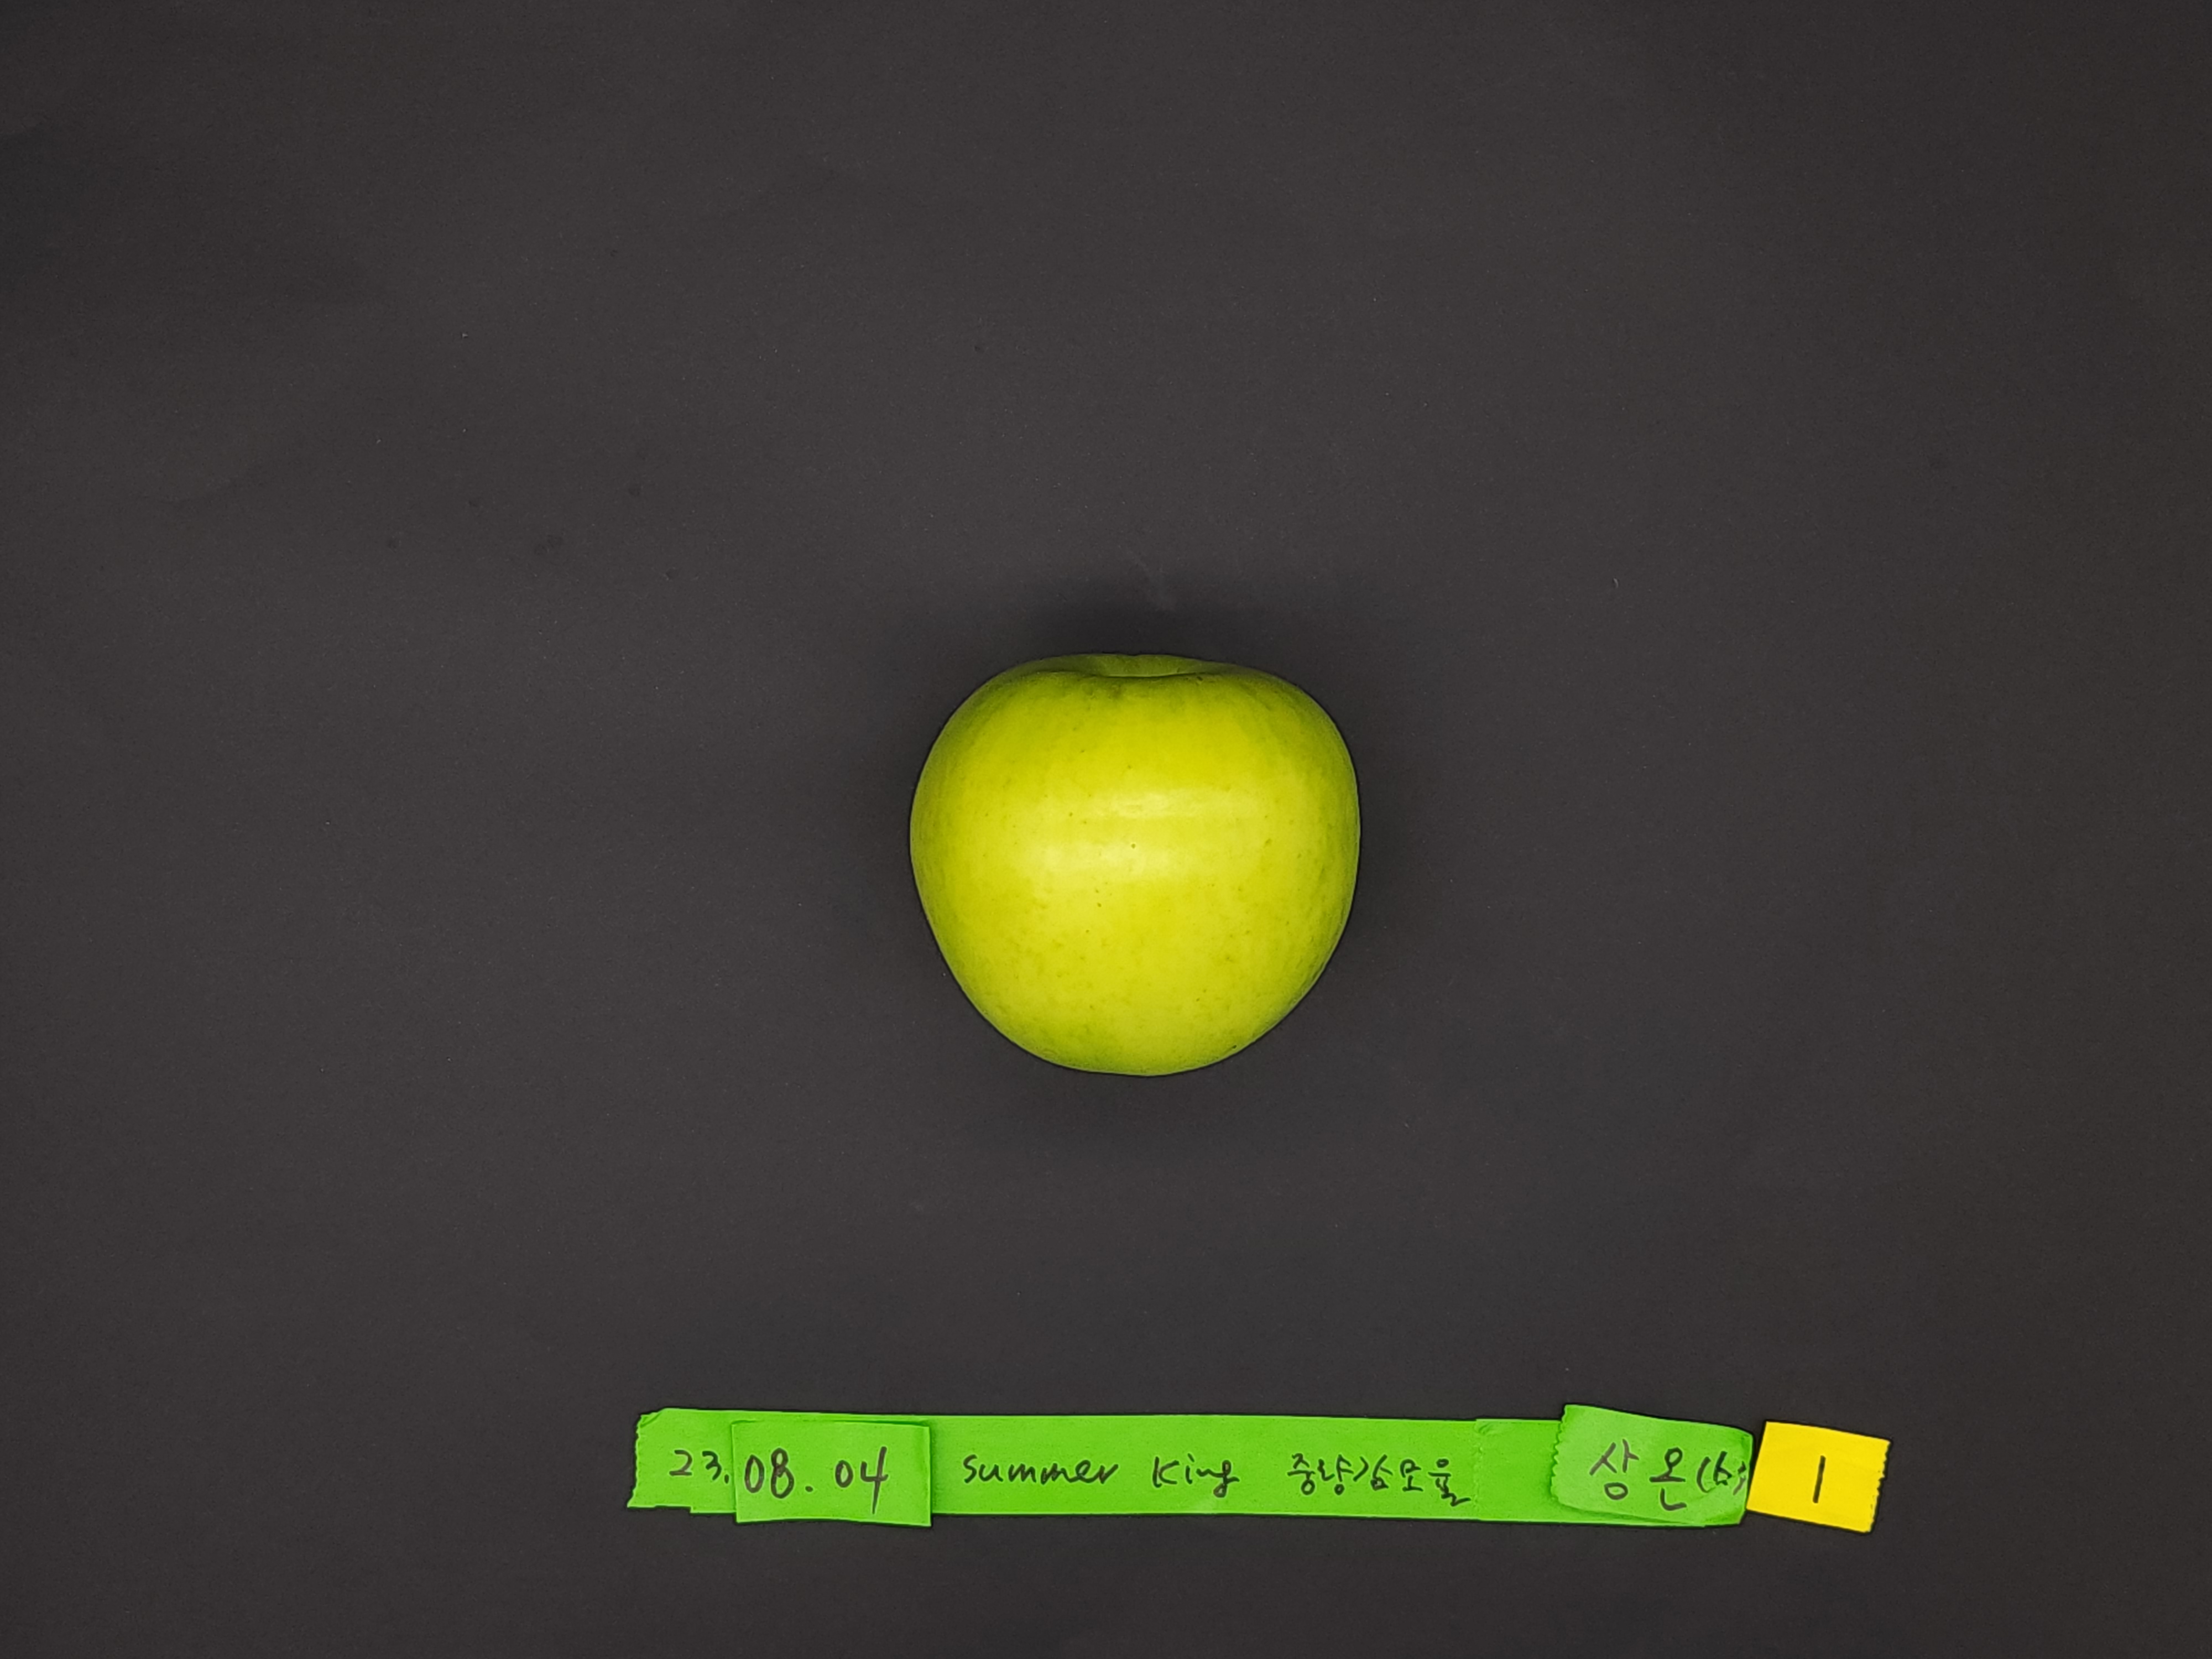 23.08.04 Summer King 중량감모율 상온 1